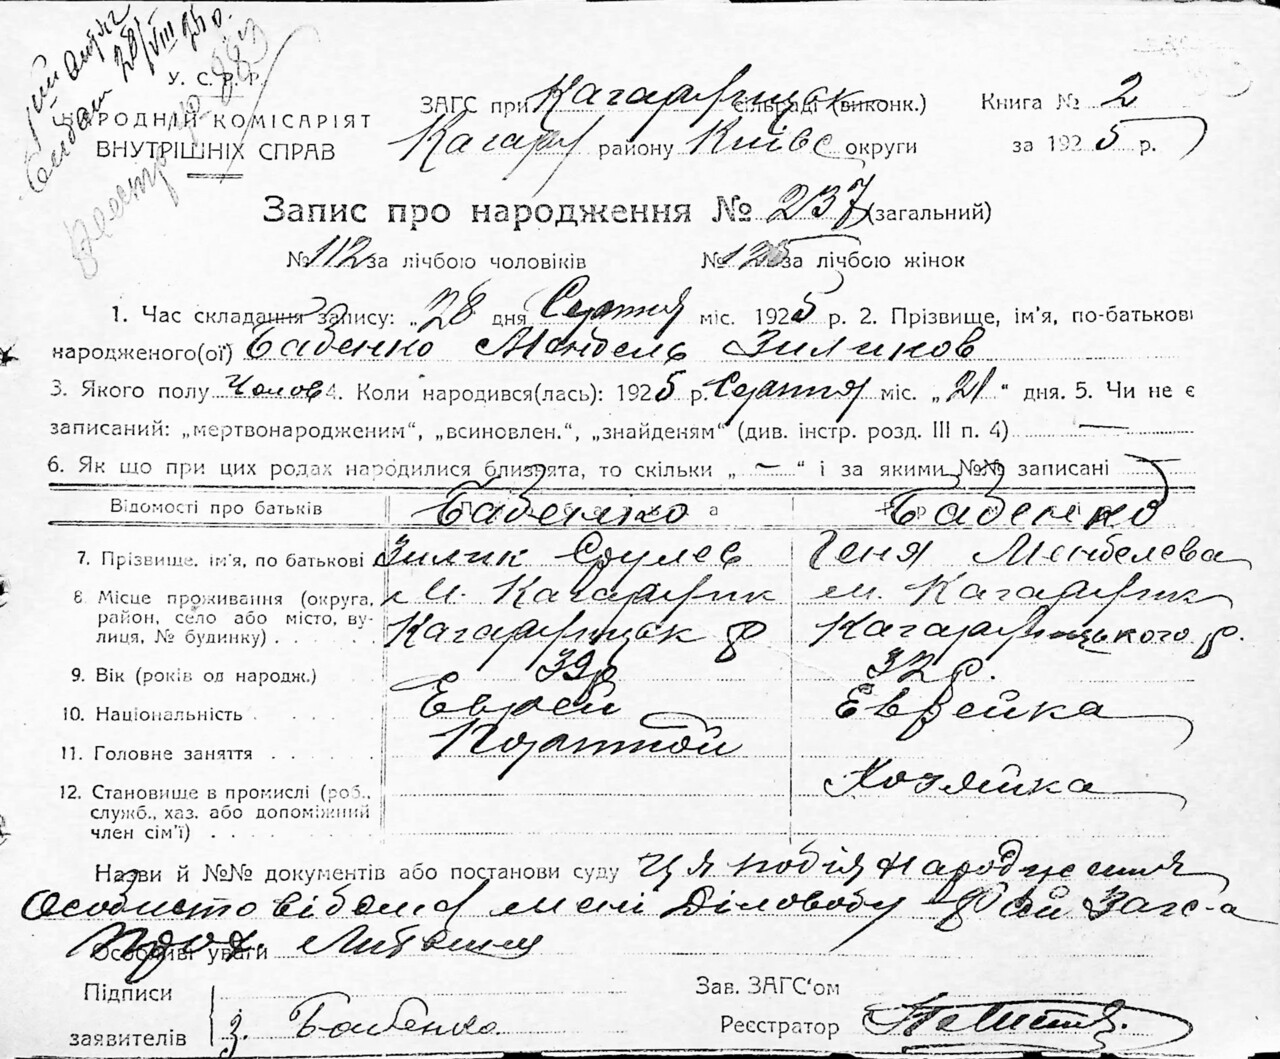 28/VIII 25 р.
883
У. С. Р. Р.
НАРОДНІЙ КОМІСАРІЯТ
ВНУТРІШНІХ СПРАВ
ЗАГС при Кагарлицьк сільраді (виконк.) Книга № 2
Кагарл району Київс округи за 1925 р.
Запис про народження № 237 (загальний)
№ 112 за лічбою чоловіків № 125 за лічбою жінок
1. Час складання запису: „28 дня Серпня міс. 1925 р. 2. Прізвище, ім'я, по-батькові
народженого(ої) Бабенко Мендель Зиликов
3. Якого полу Чолов 4. Коли народився(лась): 1925 р. Серпня міс. „21“ дня. 5. Чи не є
записаний: „мертвонародженим“, „всиновлен.“, „знайденям“ (див. інстр. розд. III п. 4) —
6. Як що при цих родах народилися близнята, то скільки „ – “ і за якими №№ записані
Відомості про батьків Бабенко Бабенко
7. Прізвище, ім'я, по батькові Зилик Срулев Геня Менделева
8. Місце проживання (округа, м. Кагарлик м. Кагарлик
район, село або місто, ву-
лиця, № будинку) Кагарлицьк р Кагарлицького р.
9. Вік (років од народж.) 39 р 32 р.
10. Національність Еврей Еврейка
11. Головне заняття Портной
12. Становище в промислі (роб., Хозяйка
служб., хаз. або допоміжний
член сім'ї)
Назви й №№ документів або постанови суду Ця подія народження
Особисто відома мені Діловоду Рай Загс-а
Особливі уваги
Підписи Зав. ЗАГС'ом
заявителів З. Бабенко Реєстратор